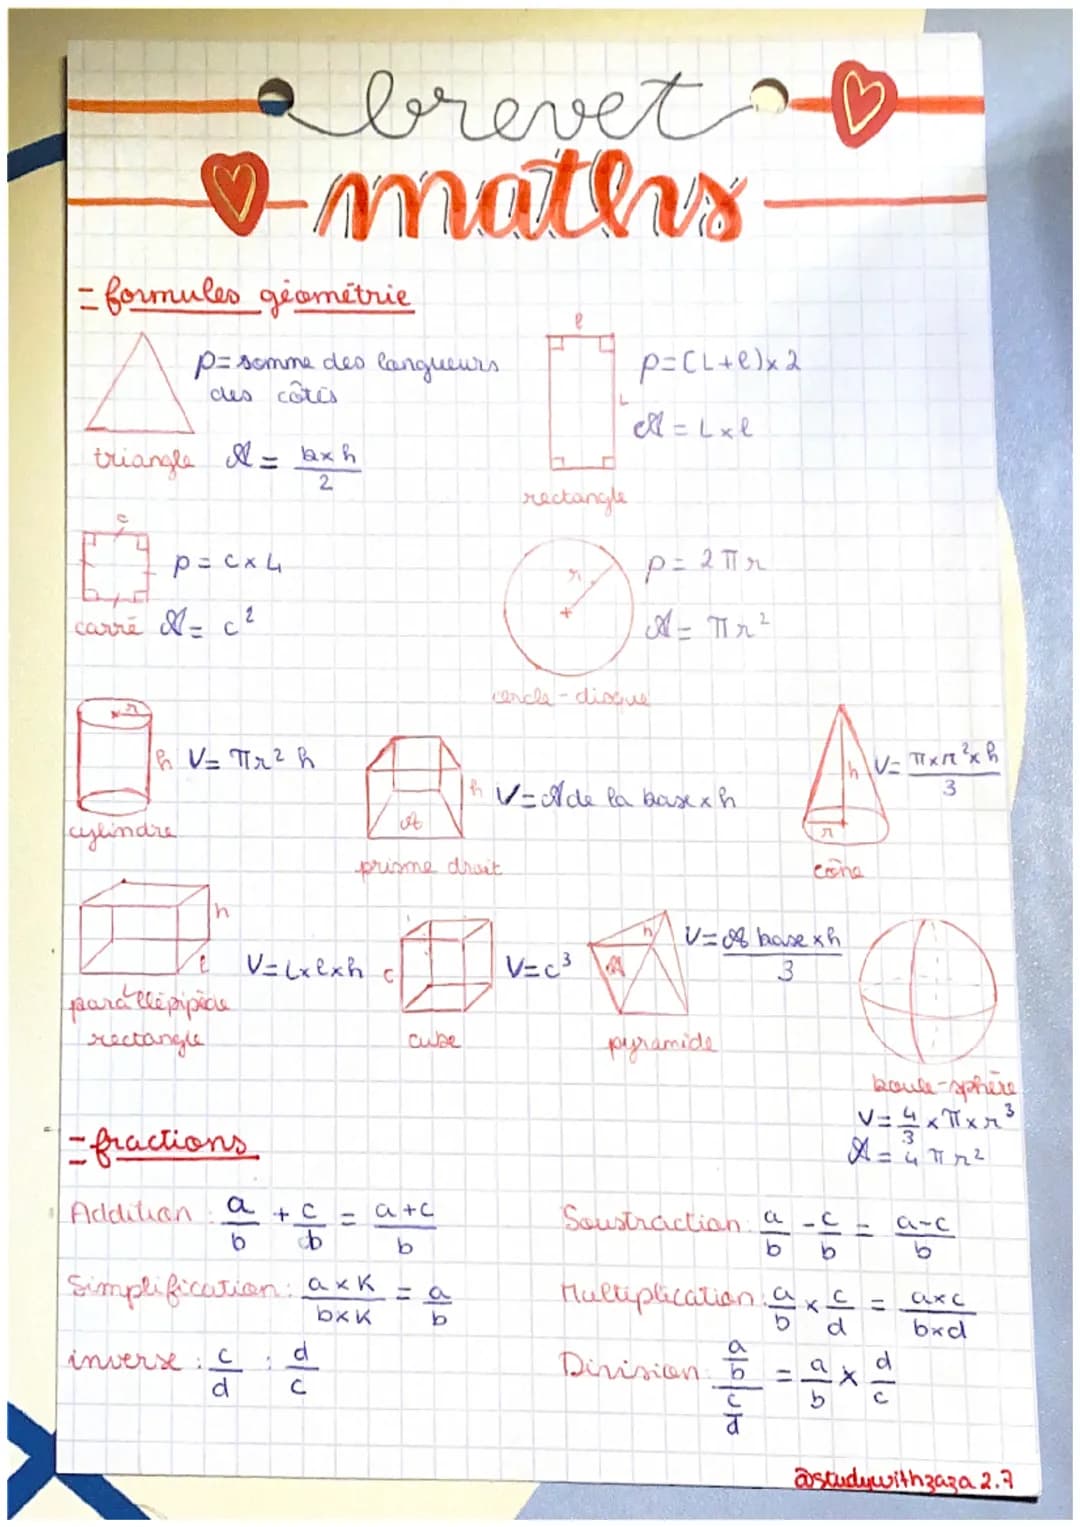 brevet
maths
= formules géométrie
p= somme des longueurs
des côtés
triangle A = b×h/2
l
L
p=(L+l)×2
A = L×l
rectangle
c
p= c×4
carré A= c²
r
p= 2πr
A= πr²
cercle-disque
r
h V= πr² h
cylindre
h V=A de la base×h
A
prisme droit
h V= π×r²×h/3
r
cône
h
l V=L×l×h
parallépipède
rectangle
c V=c³
cube
h V=A base×h/3
A
pyramide
boule-sphère
V= 4/3 ×π×r³
A= 4πr²
= fractions
Addition : a/b + c/b = a+c/b
Soustraction: a/b - c/b = a-c/b
Simplification: a×K/b×K = a/b
Multiplication: a/b × c/d = a×c/b×d
inverse : c/d : d/c
Division: a/b / c/d = a/b × d/c
@studywithzaza2.7